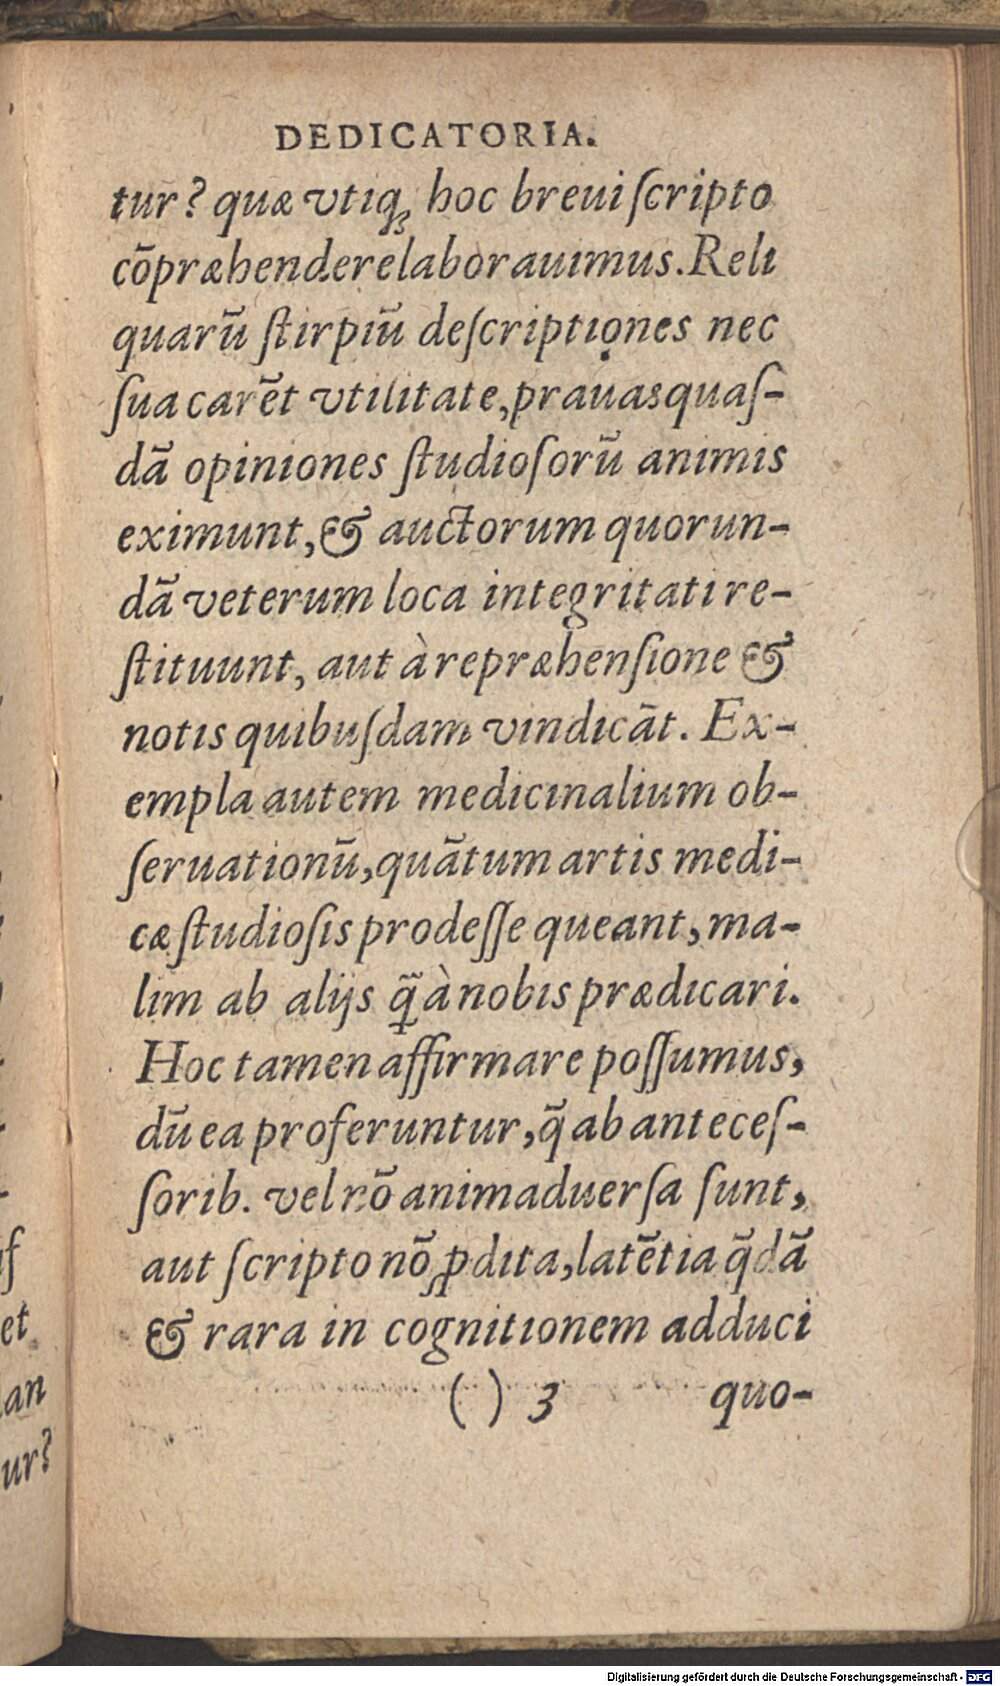 DEDICATORIA.
tur? quæ vtiq; hoc breui ſcripto
cōpræhendere laborauimus. Reli
quarū ſtirpiū deſcriptiones nec
ſua carēt vtilitate, prauas quaſ-
dā opiniones ſtudioſorū animis
eximunt, & auctorum quorun-
dā veterum loca integritati re-
ſtituunt, aut à repræhenſione &
notis quibuſdam vindicāt. Ex-
empla autem medicinalium ob-
ſeruationū, quātum artis medi-
cæ ſtudioſis prodeſſe queant, ma-
lim ab alijs q̃̄ à nobis prædicari.
Hoc tamen affirmare poſſumus,
dū ea proferuntur, q̄ ab anteceſ-
ſorib. vel nō animaduerſa ſunt,
aut ſcripto nō ꝓdita, latētia q̄dā
& rara in cognitionem adduci
( ) 3 quo-
ſ
et
an
ur?
Digitalisierung gefördert durch die Deutsche Forschungsgemeinschaft - DFG